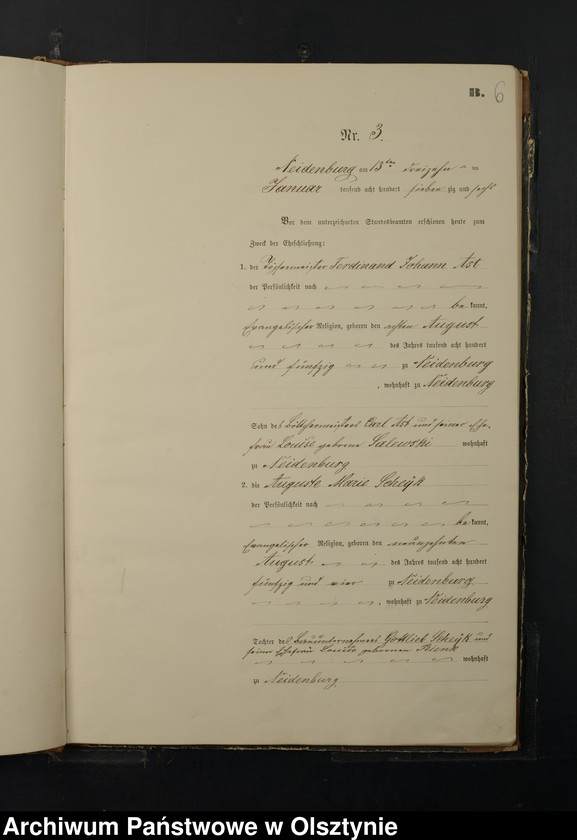 B. 6
Nr. 3.
Neidenburg am 13ten dreizehn
Januar tausend acht hundert sieben zig und sechs
Vor dem unterzeichneten Standesbeamten erschienen heute zum
Zweck der Eheschließung:
1. der Ferdinand Johann Ast
der Persönlichkeit nach
be kannt,
Evangelischer Religion, geboren den achten August
des Jahres tausend acht hundert
und fünfzig zu Neidenburg
, wohnhaft zu Neidenburg
Sohn des Carl Ast und seiner Ehe-
frau Louise geborene Salewski wohnhaft
zu Neidenburg
2. die Auguste Marie
der Persönlichkeit nach
be kannt,
Evangelischer Religion, geboren den neunzehnten
August des Jahres tausend acht hundert
fünfzig und vier zu Neidenburg
, wohnhaft zu Neidenburg
Tochter des Bauunternehmers Gottlieb und
seiner Ehefrau Louise geborenen wohnhaft
zu Neidenburg
Archiwum Państwowe w Olsztynie